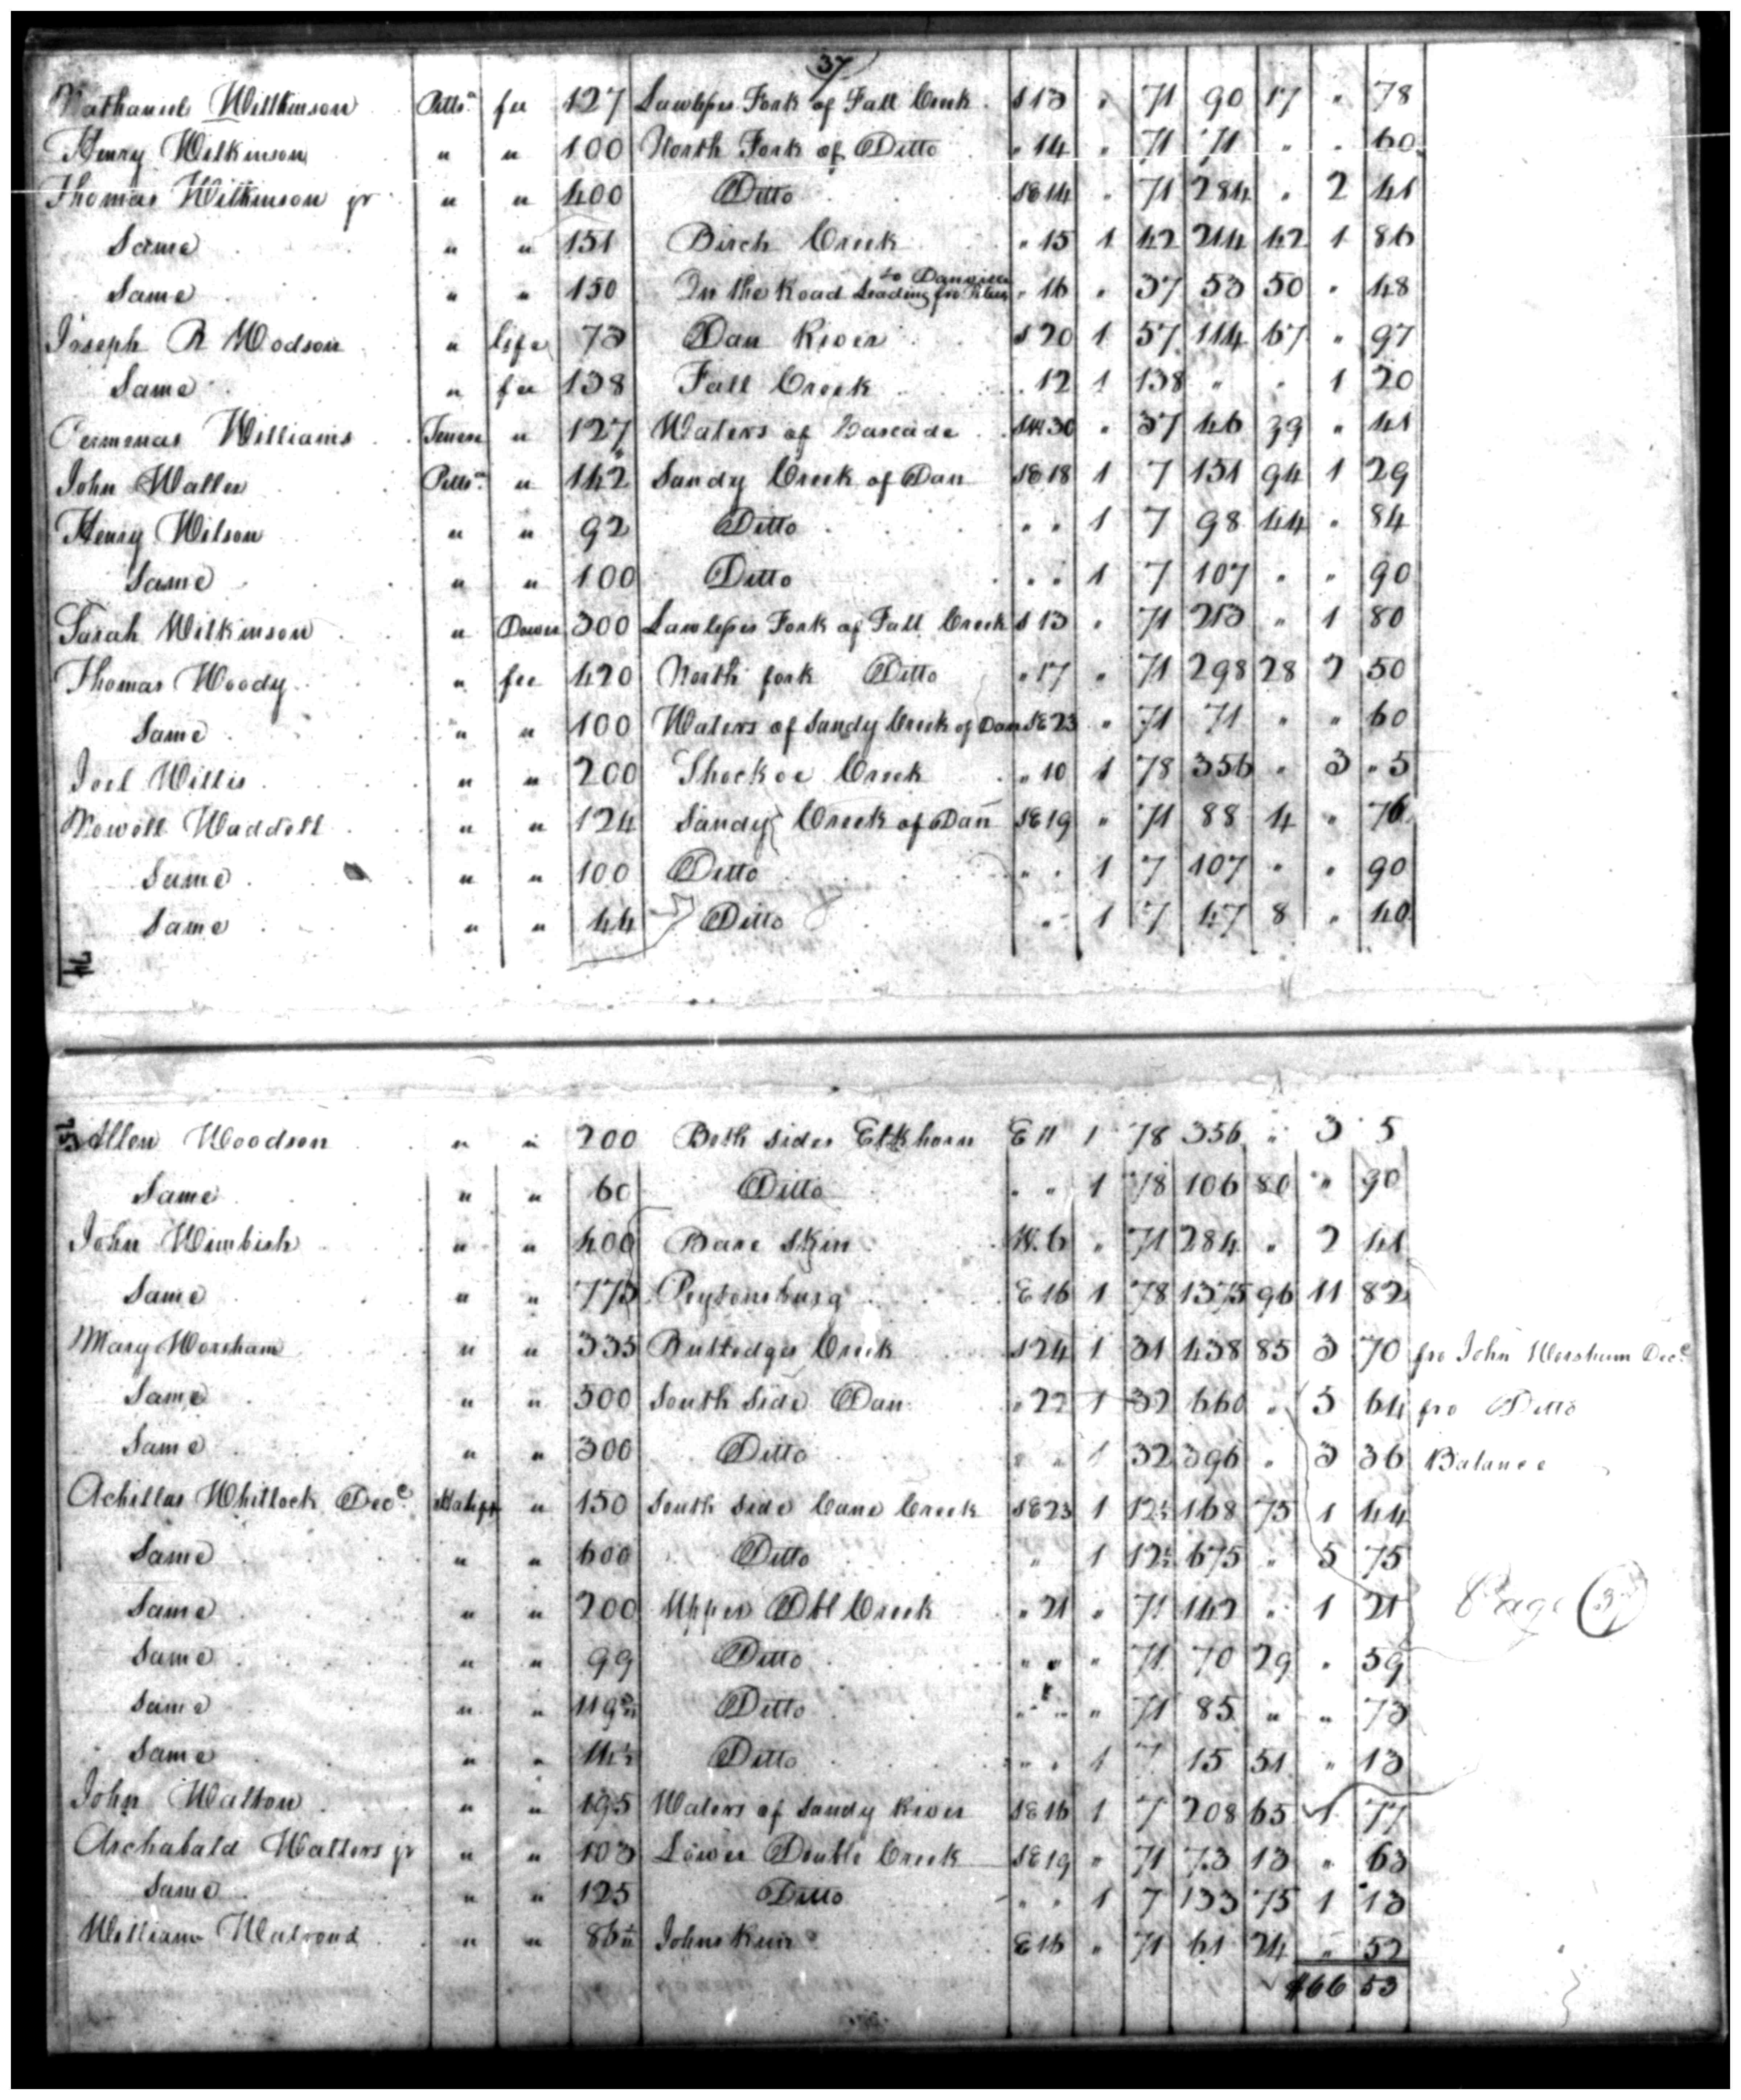 37
Nathaniel Willkinson Pitts.a fee 127 Lawless Fork of Fall Creek S 13 " 71 90 17 " 78
Henry Wilkinson " " 100 North Fork of Ditto " 14 " 71 71 " " 60
Thomas Wilkinson jr " " 400 Ditto SE 14 " 71 284 " 2 41
Same " " 151 Birch Creek " 15 1 42 214 42 1 86
Same " " 150 On the Road Leading fro to Danville " 16 " 37 53 50 " 48
Joseph R Wodson " life 73 Dan River S 20 1 57 114 67 " 97
Same " fee 138 Fall Creek " 12 1 138 " " 1 20
Williams " 127 Waters of Cascade SW 30 " 37 46 39 " 41
John Waller Pitts.a " 142 Sandy Creek of Dan SE 18 1 7 151 94 1 29
Henry Wilson " " 92 Ditto " " 1 7 98 44 " 84
Same " " 100 Ditto " " 1 7 107 " " 90
Sarah Wilkinson " Dower 300 Lawless Fork of Fall Creek S 13 " 71 213 " 1 80
Thomas Woody " fee 420 North fork Ditto " 17 " 71 298 28 2 50
Same " " 100 Waters of Sandy Creek of Dan SE 23 " 71 71 " " 60
Joel Willis " " 200 Shockoe Creek " 10 1 78 356 " 3 " 5
Nowell Waddell " " 124 Sandy Creek of Dan SE 19 " 71 88 4 " 76
Same " " 100 Ditto " " 1 7 107 " " 90
Same " " 44 Ditto " " 1 7 47 8 " 40
74
75
Allen Woodson " " 200 Both sides Elkhorn E 11 1 78 356 " 3 5
Same " " 60 Ditto " " 1 78 106 80 " 90
John Wimbish " " 400 Bare Skin N. 6 " 71 284 " 2 41
Same " " 773 Peytonsburg E 16 1 78 1375 96 11 82
Mary Worsham " " 335 Rutledges Creek S 24 1 31 438 85 3 70 fro John Worsham Dec.d
Same " " 500 South Side Dan " 22 1 32 660 " 5 64 fro Ditto
Same " " 300 Ditto " " 1 32 396 " 3 36 Balance
Achillas Whitlock Dec.d Halifx " 150 South Side Cane Creek SE 23 1 12½ 168 75 1 44
Same " " 600 Ditto " 1 12½ 675 " 5 75
Same " " 200 Upper Dbl Creek " 21 " 71 142 " 1 21
Page
Same " " 99 Ditto " " " 71 70 29 " 59
Same " " 119 Ditto " " " 71 85 " " 73
Same " " 14½ Ditto " " 1 7 15 51 " 13
John Walton " " 195 Waters of Sandy River SE 16 1 7 208 65 1 77
Archabald Walters jr " " 103 Lower Double Creek SE 19 " 71 73 13 " 63
Same " " 125 Ditto " " 1 7 133 75 1 13
William Walrond " " 86 Johns Run E 16 " 71 61 24 " 52
$66 53